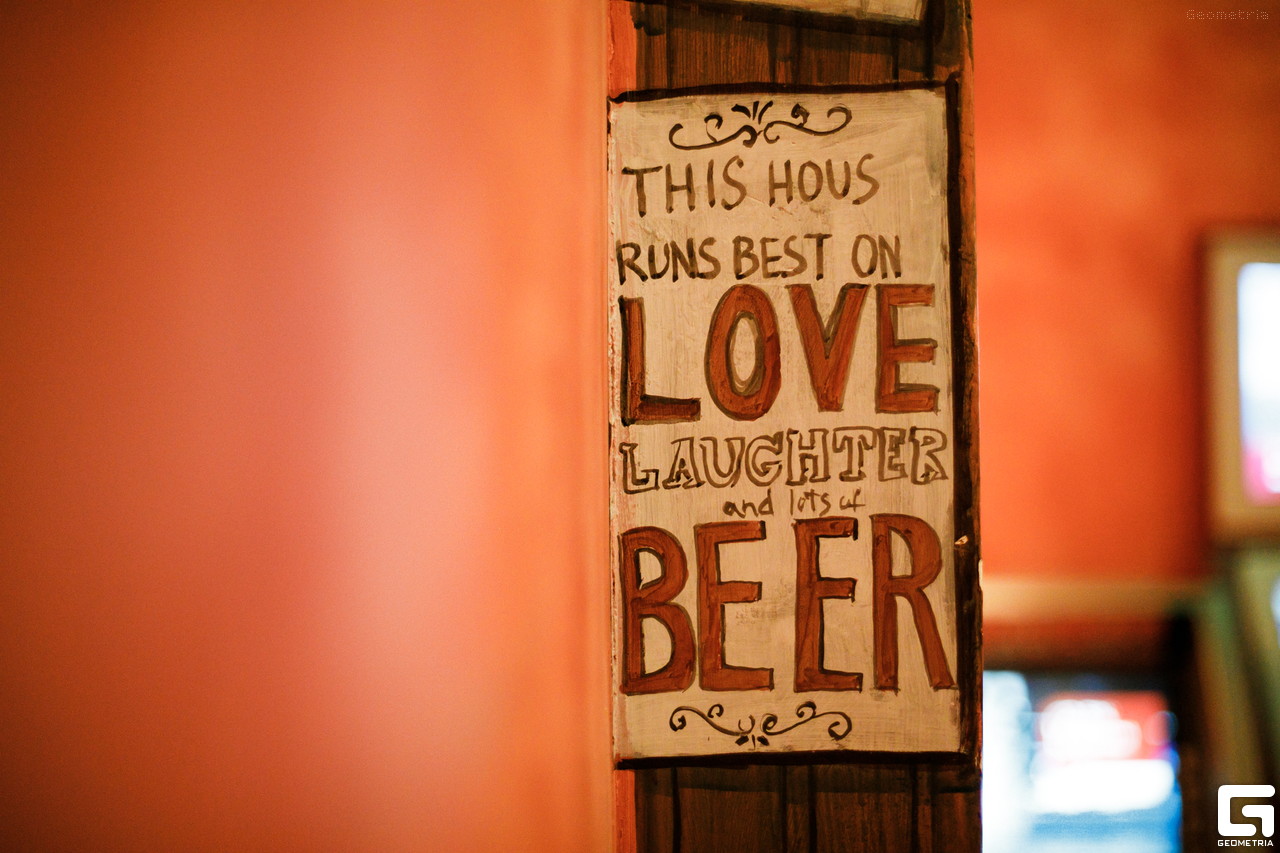 Geometria
THIS HOUS
RUNS BEST ON
LOVE
LAUGHTER
and lots of
BEER
GEOMETRIA